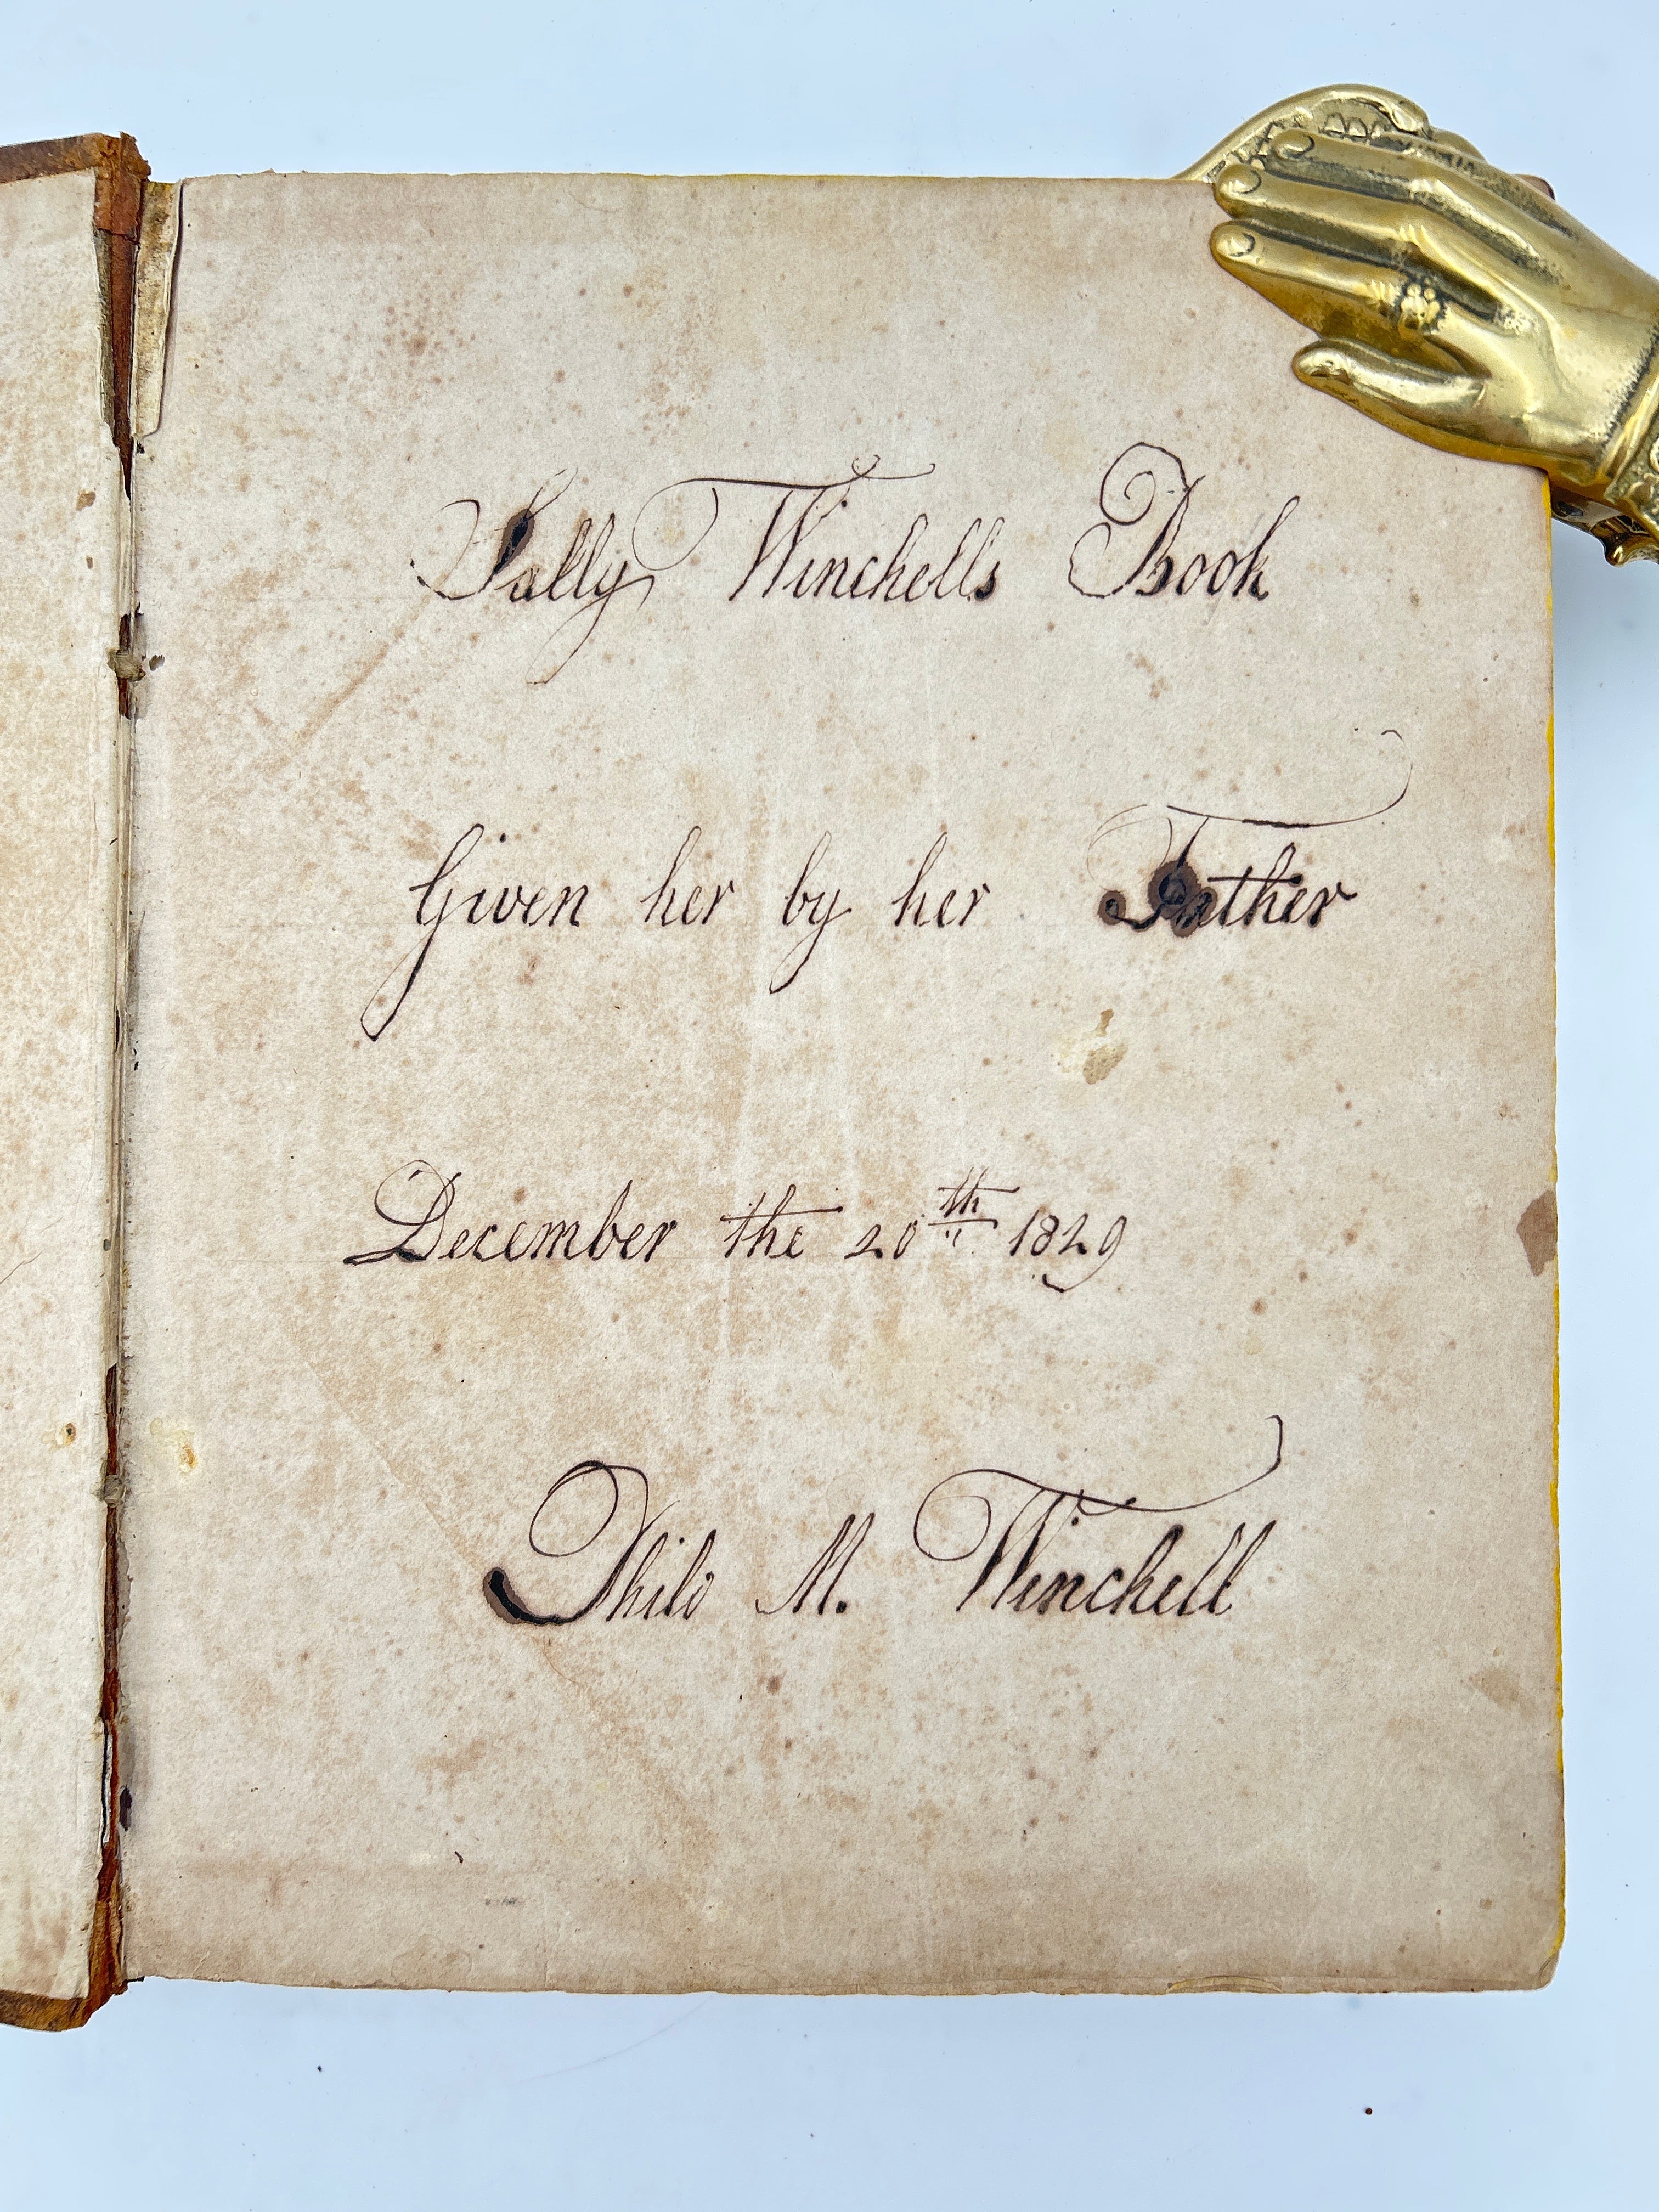 Sally Winchells Book
Given her by her Father
December the 20th 1829
Philo M. Winchell